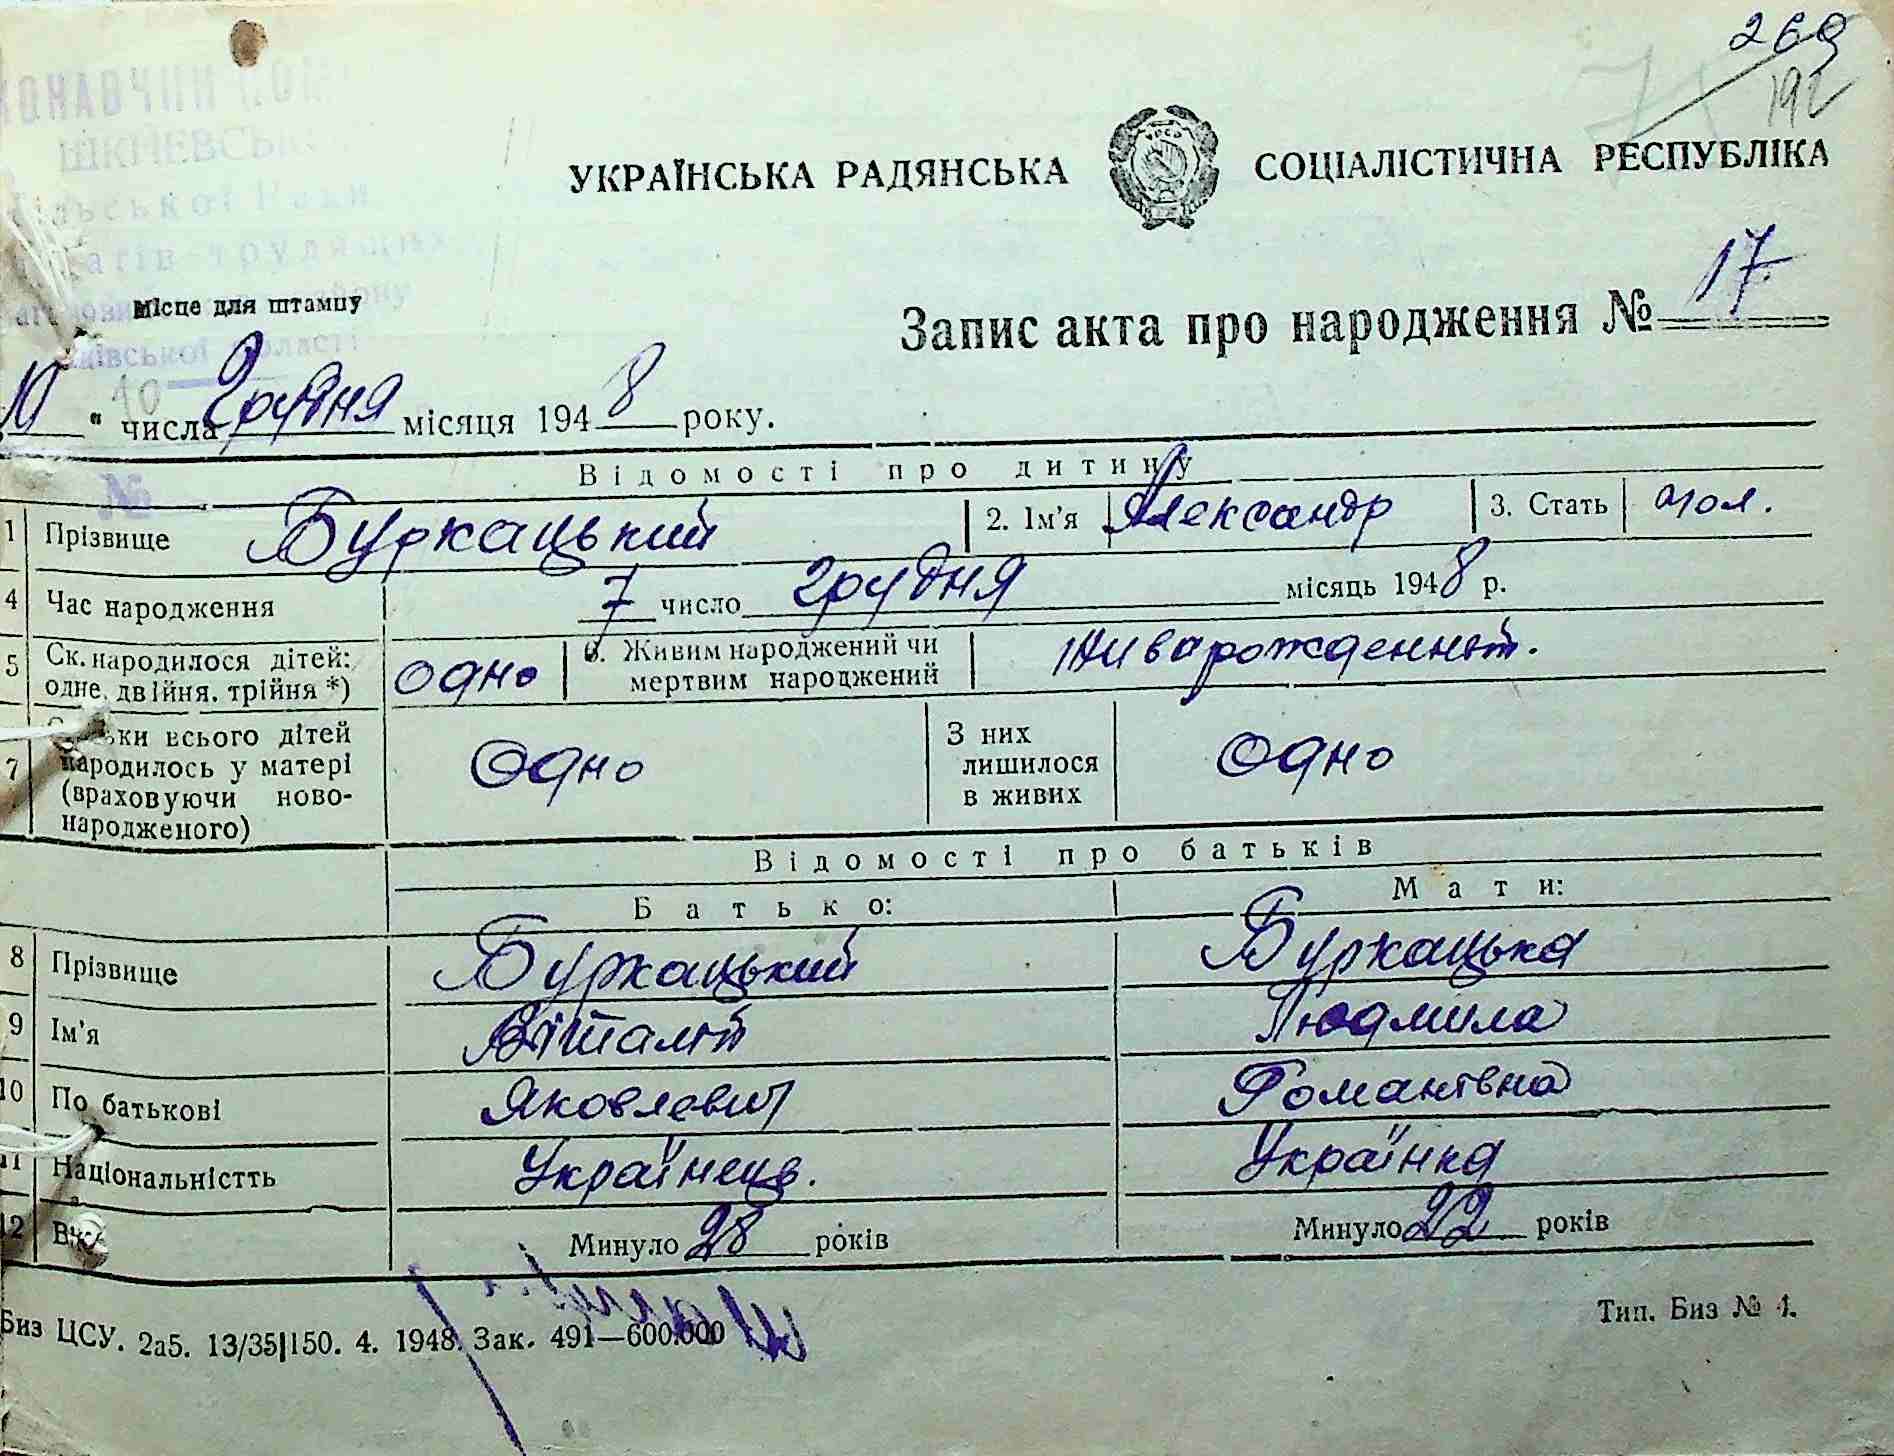 269
192
УКРАЇНСЬКА РАДЯНСЬКА СОЦІАЛІСТИЧНА РЕСПУБЛІКА
Місце для штампу
Запис акта про народження № 17
10 " числа Грудня місяця 1948 року.
Відомості про дитину
1 Прізвище Буркацький 2. Ім'я Александр 3. Стать чол.
4 Час народження 7 число грудня місяць 1948 р.
5 Ск. народилося дітей: одне, двійня, трійня *) одно 6. Живим народжений чи мертвим народжений
7 всього дітей народилось у матері (враховуючи новонародженого) Одно З них лишилося в живих Одно
Відомості про батьків
Батько: Мати:
8 Прізвище Буркацький Буркацька
9 Ім'я Віталій Людмила
10 По батькові Яковлевич Романівна
11 Національністть Українець. Українка
12 Вік Минуло 28 років Минуло 22 років
Биз ЦСУ. 2а5. 13/35|150. 4. 1948. Зак. 491—600.000
Тип. Биз № 1.